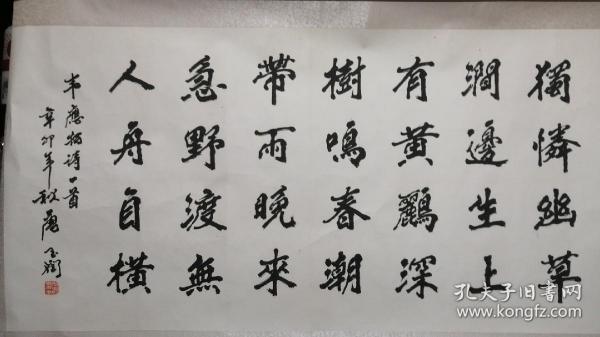 獨憐幽草
澗邊生上
有黃鸝深
樹鳴春潮
帶雨晚來
急野渡無
人舟自橫
韦應物诗一首
辛卯年秋
孔夫子旧书网
www.kongfz.com